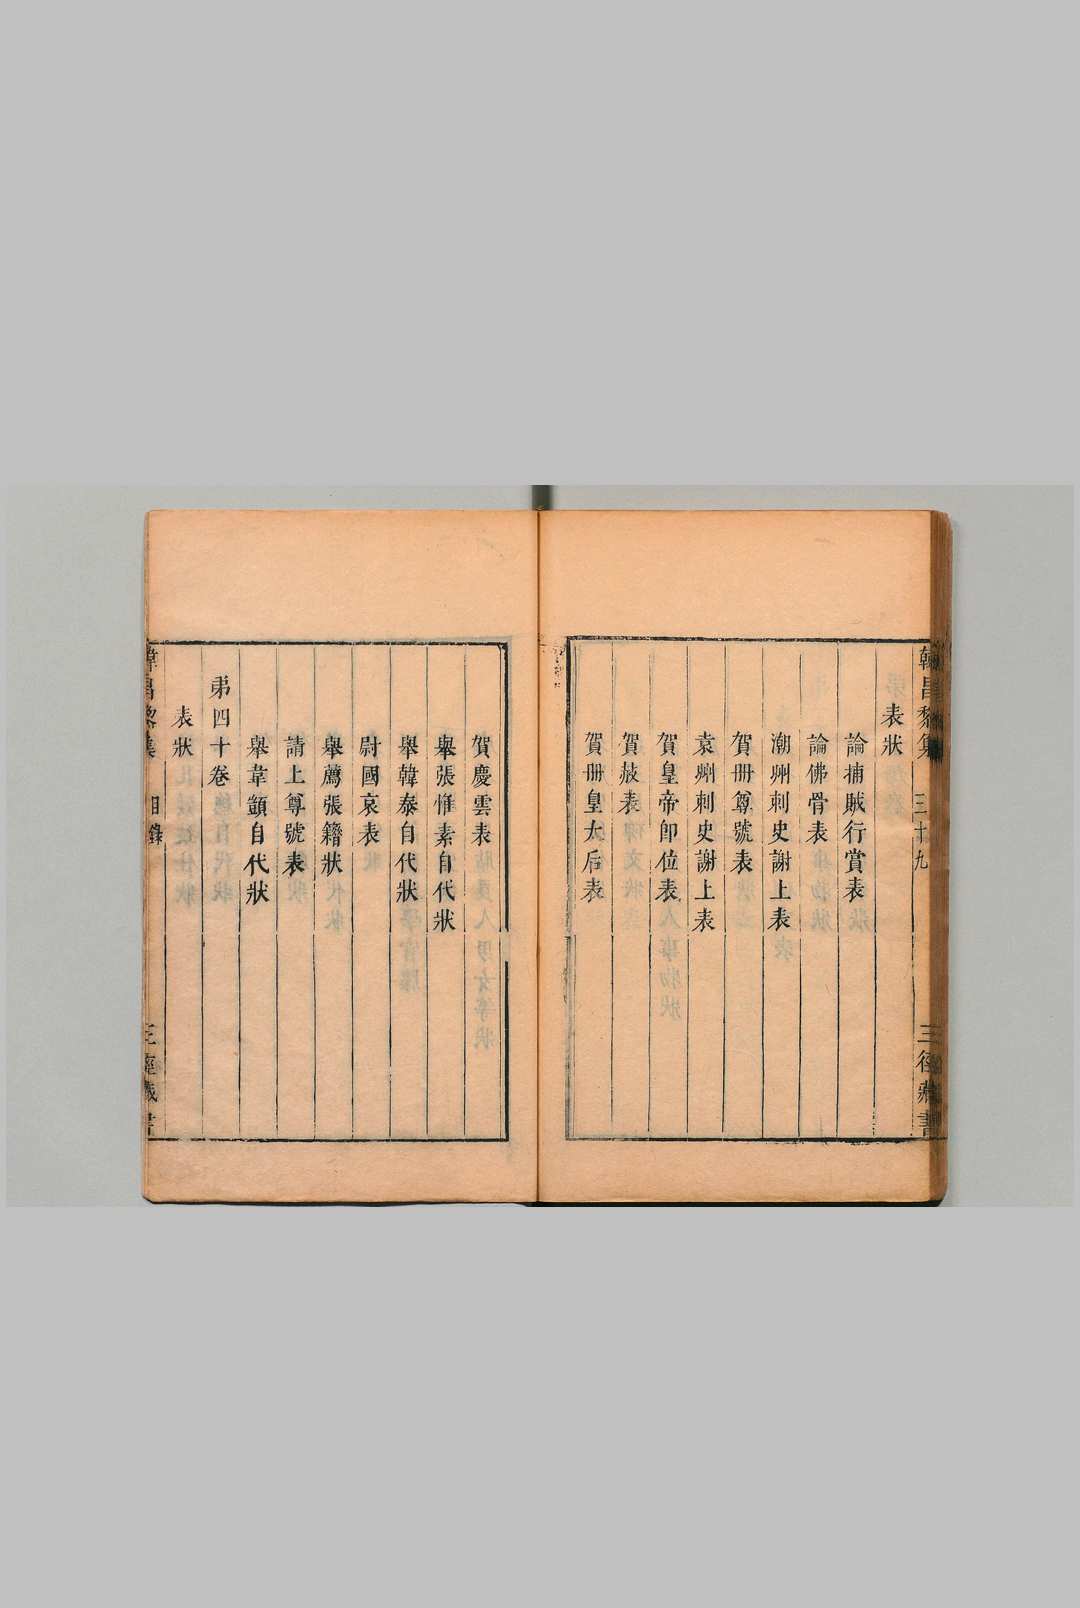 韓昌黎集
三十九
三徑藏書
表狀
論捕賊行賞表
論佛骨表
潮州刺史謝上表
賀冊尊號表
袁州刺史謝上表
賀皇帝卽位表
賀赦表
賀冊皇太后表
賀慶雲表
舉張惟素自代狀
舉韓泰自代狀
慰國哀表
舉薦張籍狀
請上尊號表
舉韋顗自代狀
弟四十卷
表狀
韓昌黎集
目錄
三徑藏書